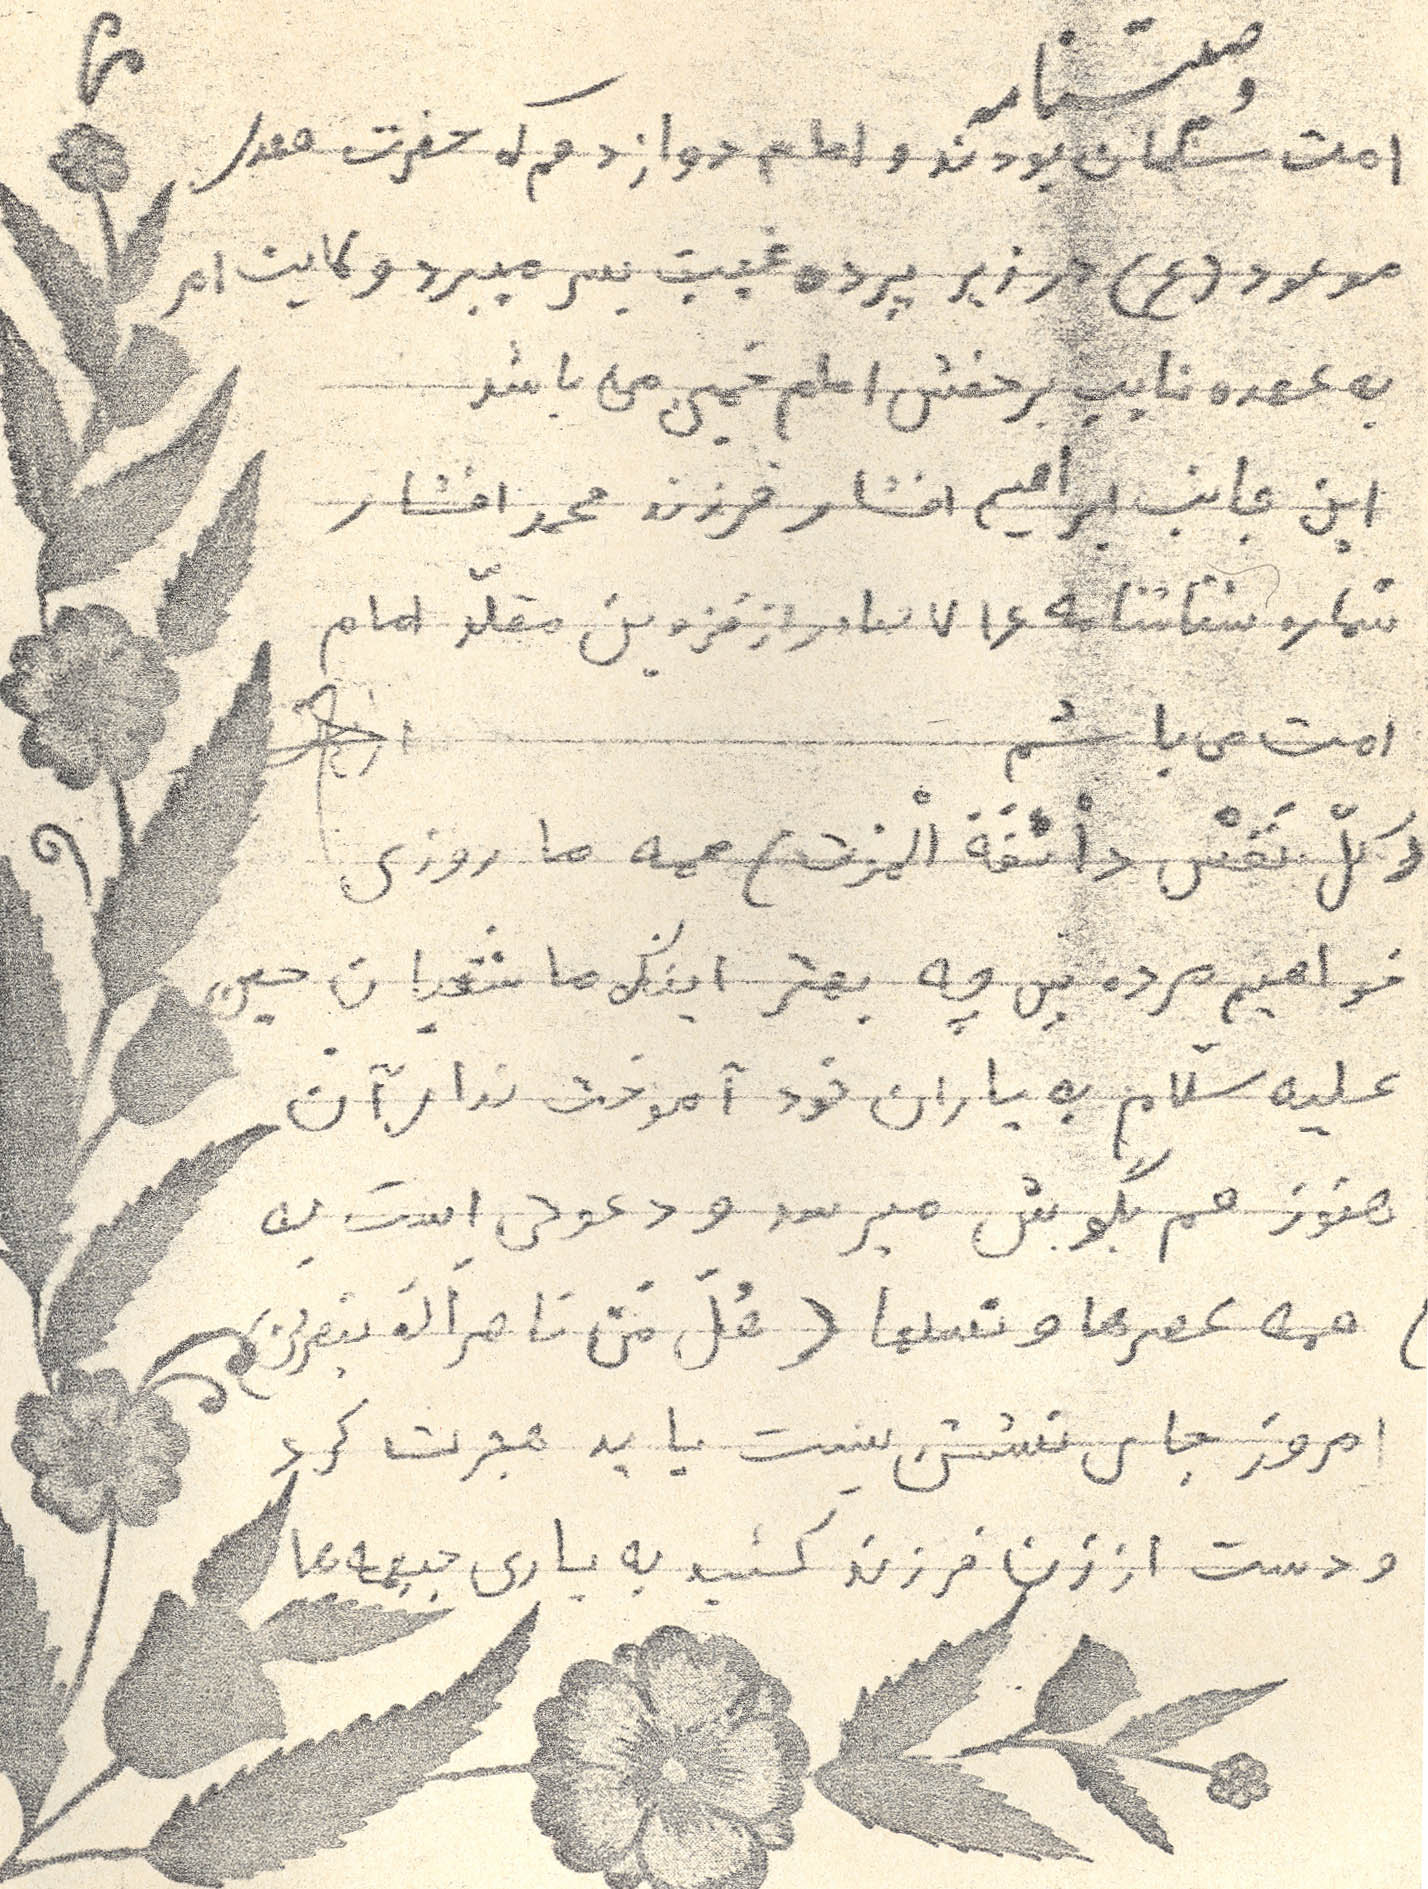 وصیتنامه
امت ستمگان بودند و امام دوازدهم که حضرت مهدی
موعود (عج) در زیر پرده غیبت بسر میبرد و ولایت امر
به عهده نایب برحقش امام خمینی می باشد
این جانب ابراهیم افشار فرزند محمد افشار
شماره شناسنامه ۷۱۶ صادر از قزوین مقلّد امام
امت می باشم
(کلّ نَفْس ذائقة الْموت) همه ما روزی
خواهیم مرد پس چه بهتر اینکه ما شعیان حسین
علیه سلّام به یاران خود آموخت ندای آن
هنوز هم بگوش میرسد و دعوتی است به
همه عصرها و نسلها (هَلّ مَن ناصراً ینصرنی)
امروز جای نشستن نیست باید هجرت کرد
و دست از زن فرزند کشید به یاری جبهه ها